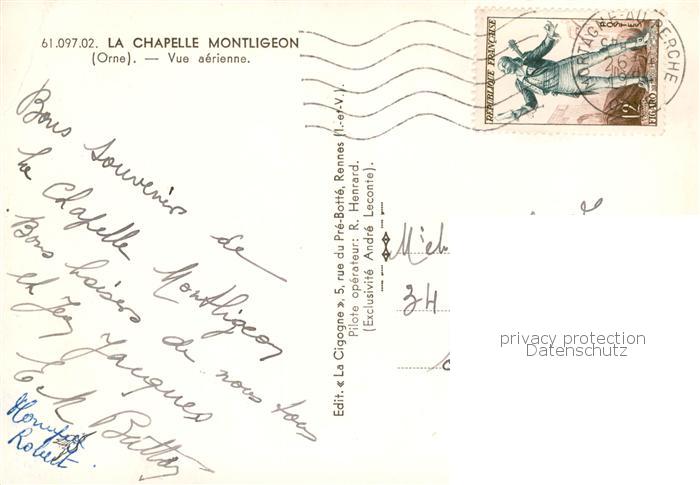 61.097.02. LA CHAPELLE MONTLIGEON
(Orne). — Vue aérienne.
Bons souvenirs de
La Chapelle Montligeon
Bons baisers de nous tous
et Jean Jacques
Robert
Edit. « La Cigogne », 5, rue du Pré-Botté, Rennes (I.-et-V.).
Pilote opérateur: R. Henrard.
(Exclusivité André Leconte).
RÉPUBLIQUE FRANÇAISE
POSTES
12F
FIGARO
MORTAGNE-AU-PERCHE
Mich
34
privacy protection
Datenschutz